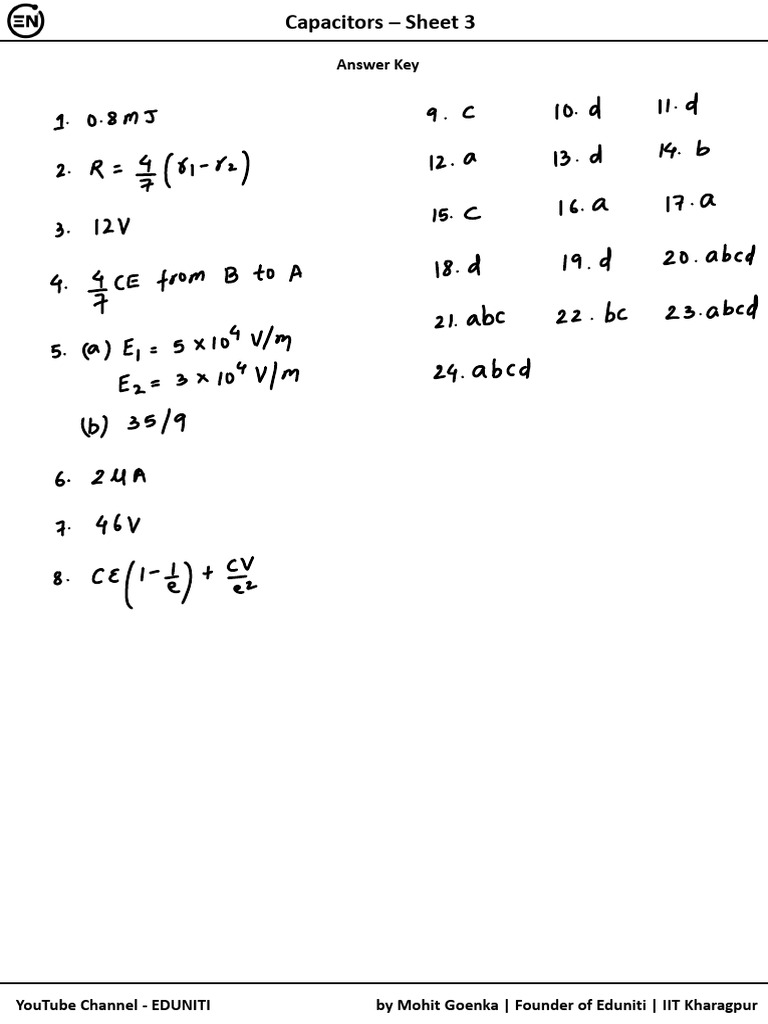 EN
Capacitors – Sheet 3
Answer Key
1. 0.8 mJ
2. R = 4/7 (r₁ - r₂)
3. 12V
4. 4/7 CE from B to A
5. (a) E₁ = 5 × 10⁴ V/m
E₂ = 3 × 10⁴ V/m
(b) 35/9
6. 2 μA
7. 46V
8. Cε(1 - 1/e) + CV/e²
9. c 10. d 11. d
12. a 13. d 14. b
15. c 16. a 17. a
18. d 19. d 20. abcd
21. abc 22. bc 23. abcd
24. abcd
YouTube Channel - EDUNITI by Mohit Goenka | Founder of Eduniti | IIT Kharagpur